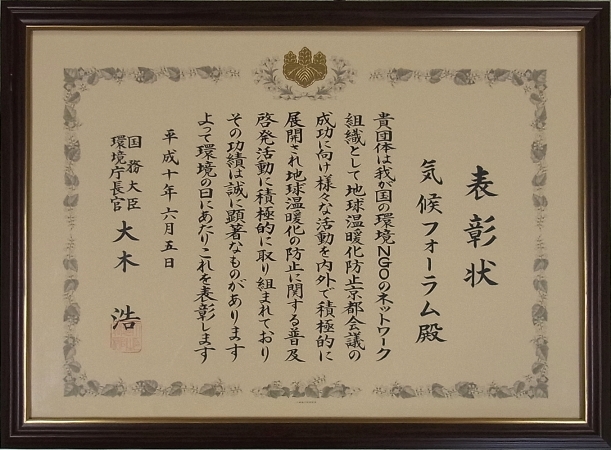 表彰状
気候フォーラム殿
貴団体は我が国の環境NGOのネットワーク
組織として地球温暖化防止京都会議の
成功に向け様々な活動を内外で積極的に
展開され地球温暖化の防止に関する普及
啓発活動に積極的に取り組まれており
その功績は誠に顕著なものがあります
よって環境の日にあたりこれを表彰します
平成十年六月五日
国務大臣
環境庁長官
大木浩